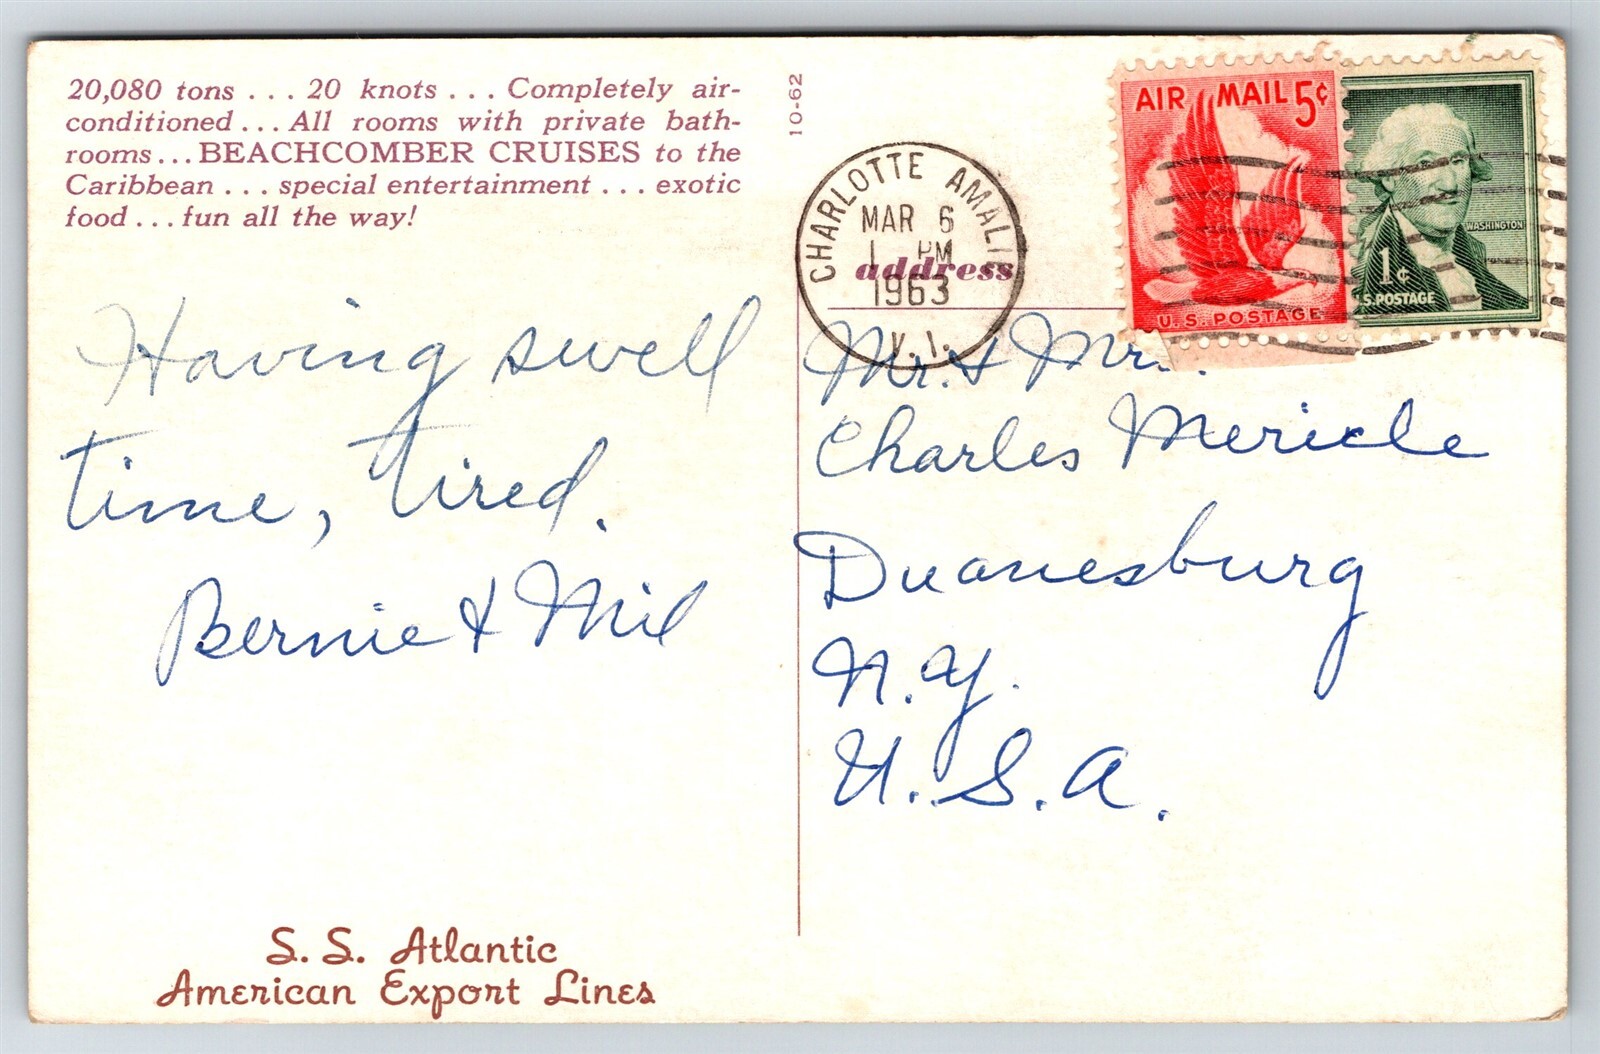 20,080 tons . . . 20 knots . . . Completely air-
conditioned . . . All rooms with private bath-
rooms . . . BEACHCOMBER CRUISES to the
Caribbean . . . special entertainment . . . exotic
food . . . fun all the way!
10-62
AIR MAIL 5¢
U.S. POSTAGE
WASHINGTON
1¢
U.S. POSTAGE
CHARLOTTE AMALIE
MAR 6
1 PM
1963
V. I.
address
Having swell
time, tired.
Bernie & Mil
Mr. & Mr.
Charles Mericle
Duanesburg
N.Y.
U.S.A.
S. S. Atlantic
American Export Lines